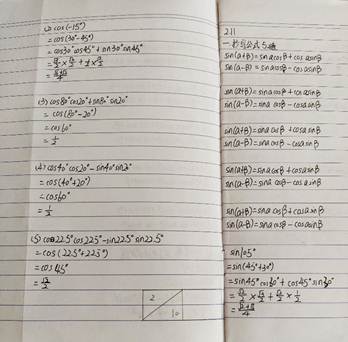 (2) cos(-15°)
=cos(30°-45°)
=cos30°cos45°+sin30°sin45°
=√3/2×√2/2+1/2×√2/2
=(√6+√2)/4
(3) cos80°cos20°+sin80°sin20°
=cos(80°-20°)
=cos60°
=1/2
(4) cos40°cos20°-sin40°sin20°
=cos(40°+20°)
=cos60°
=1/2
(5) cos22.5°cos22.5°-sin22.5°sin22.5°
=cos(22.5°+22.5°)
=cos45°
=√2/2
2
10
211
一.抄写公式5遍
sin(α+β)=sinαcosβ+cosαsinβ
sin(α-β)=sinαcosβ-cosαsinβ
sin(α+β)=sinαcosβ+cosαsinβ
sin(α-β)=sinαcosβ-cosαsinβ
sin(α+β)=sinαcosβ+cosαsinβ
sin(α-β)=sinαcosβ-cosαsinβ
sin(α+β)=sinαcosβ+cosαsinβ
sin(α-β)=sinαcosβ-cosαsinβ
sin(α+β)=sinαcosβ+cosαsinβ
sin(α-β)=sinαcosβ-cosαsinβ
sin105°
=sin(45°+30°)
=sin45°cos30°+cos45°sin30°
=√2/2×√3/2+√2/2×1/2
=(√6+√2)/4